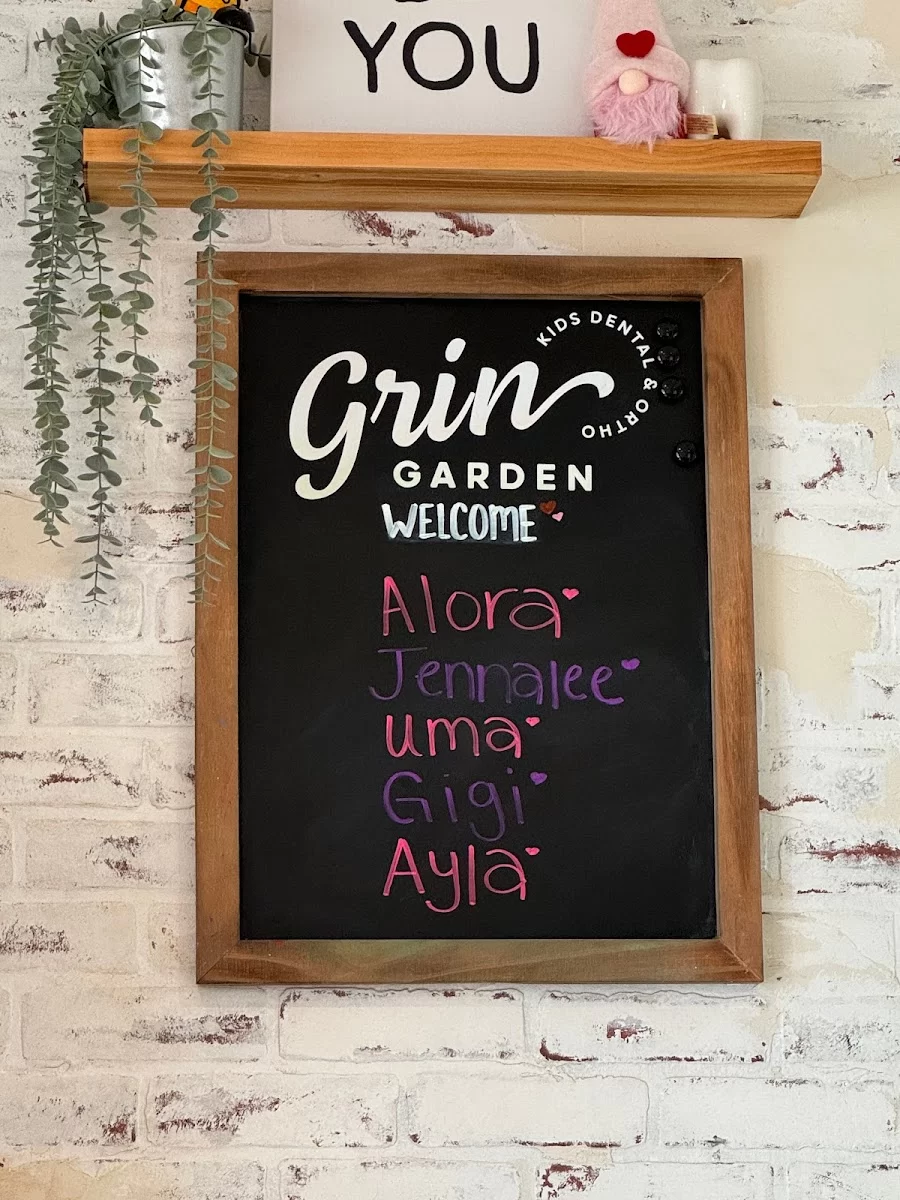 YOU
Grin
KIDS DENTAL & ORTHO
GARDEN
WELCOME
Alora
Jennalee
uma
Gigi
Ayla